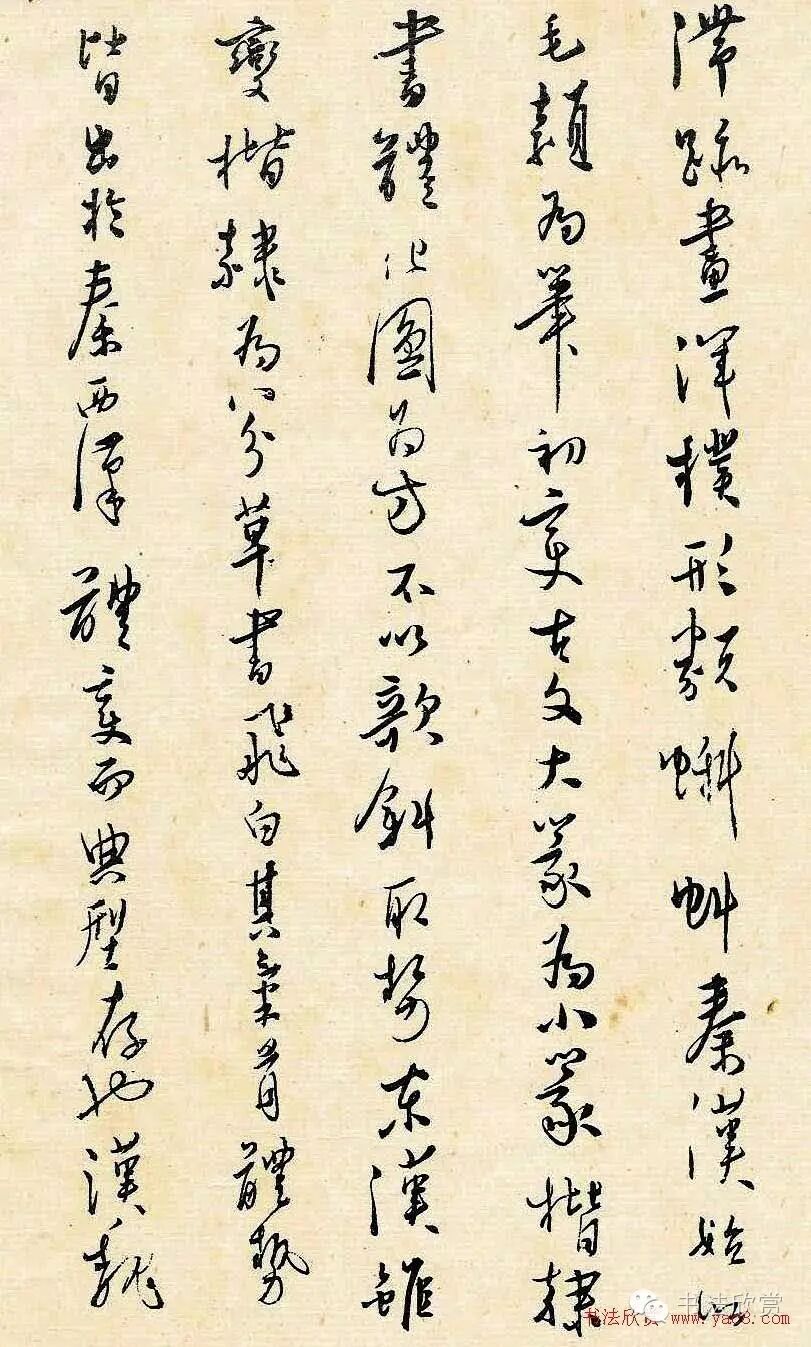 滯疏畫渾樸形類蝌蚪秦漢始以
毛穎為筆初變古文大篆為小篆楷隸
書體化圓為方不以欹斜取勢東漢雖
變楷隸為八分草書飛白其氣骨體勢
皆出於秦西漢體變而典型存也漢魏
书法欣赏
书法欣赏 www.yac8.com